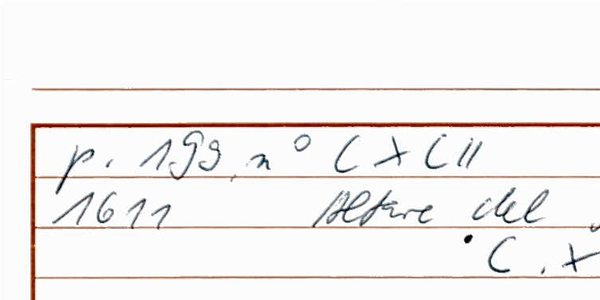 p. 199, n° CXCII
1611 Altare del
C. X